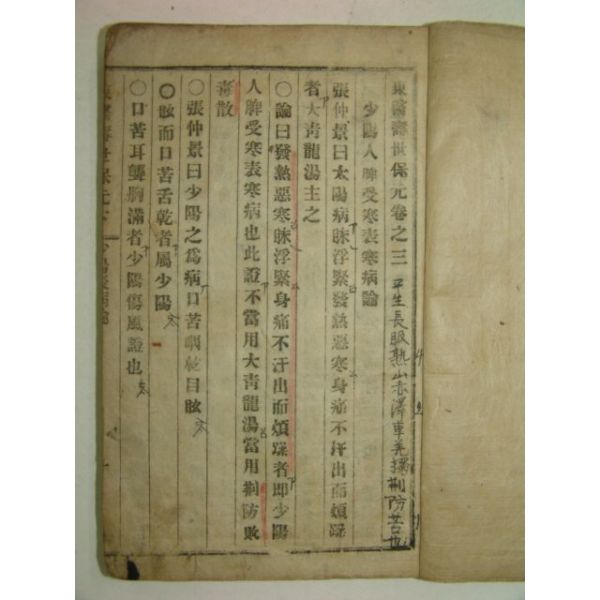 東醫壽世保元卷之三
平生長服熟山赤澤車羌獨荊防
少陽人脾受寒表寒病論
張仲景曰太陽病脉浮緊發熱惡寒身痛不汗出而煩躁
者大靑龍湯主之
〇論曰發熱惡寒脉浮緊身痛不汗出而煩躁者即少陽
人脾受寒表寒病也此證不當用大靑龍湯當用荊防敗
毒散
〇張仲景曰少陽之爲病口苦咽乾目眩
〇眩而口苦舌乾者屬少陽
〇口苦耳聾胸滿者少陽傷風證也